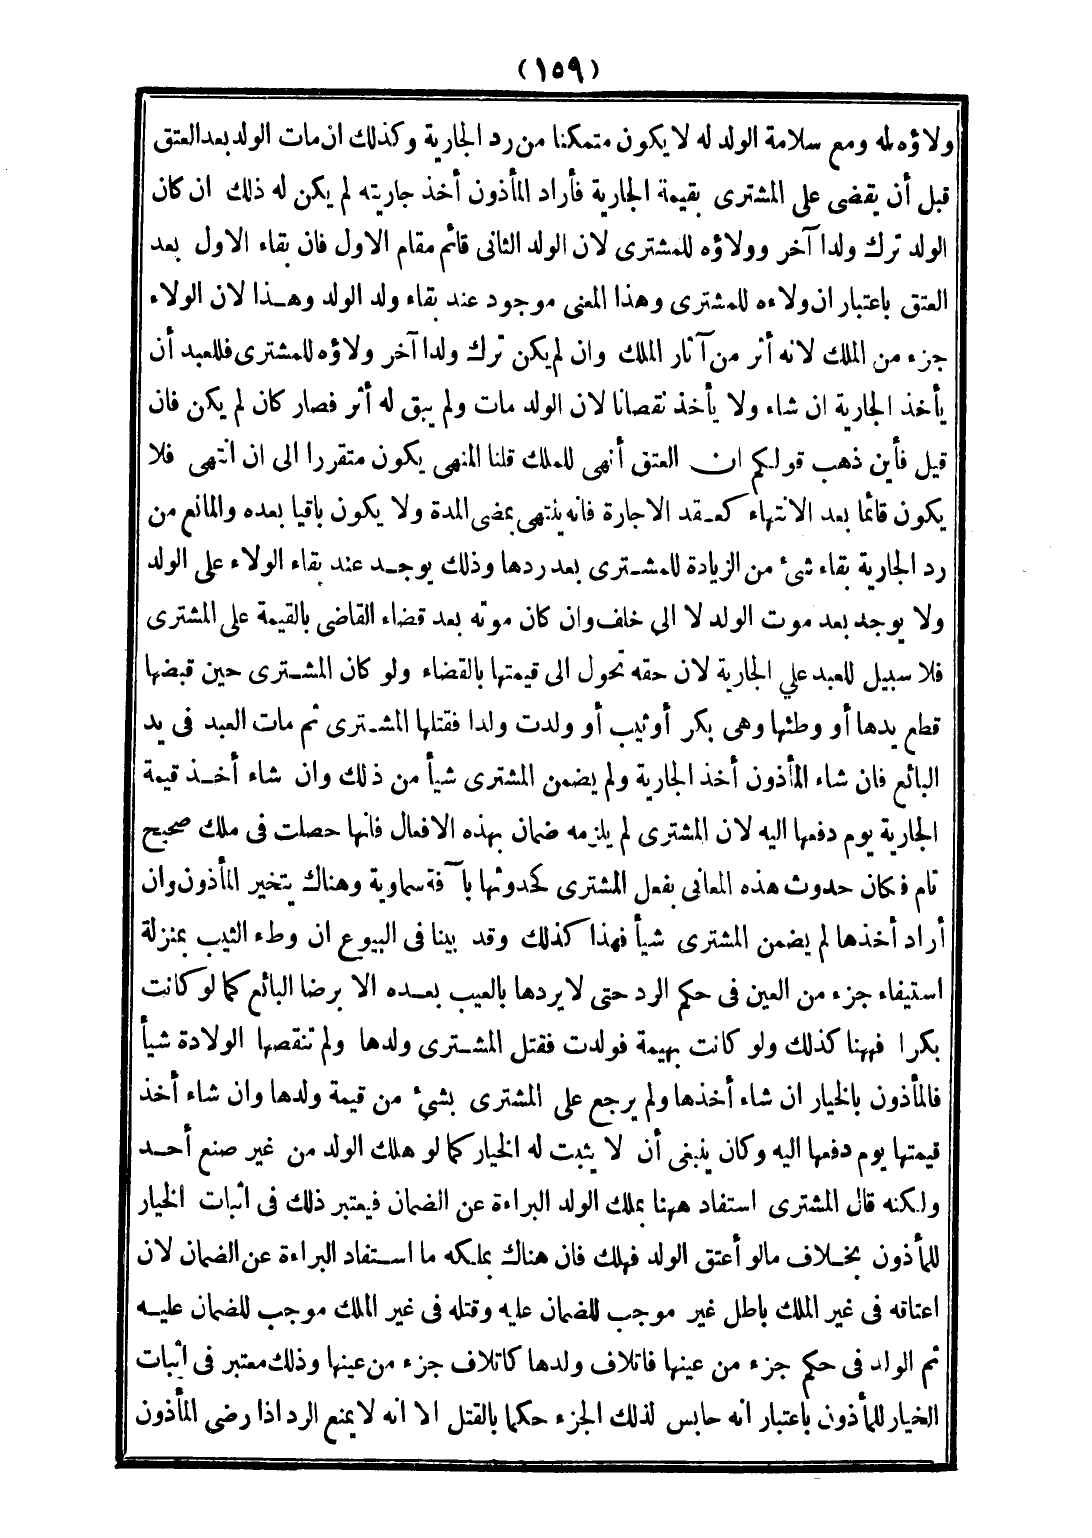 (١٥٩)
ولاؤه له ومع سلامة الولد له لا يكون متمكنا من رد الجارية وكذلك ان مات الولد بعد العتق
قبل أن يقضى على المشترى بقيمة الجارية فأراد المأذون أخذ جاريته لم يكن له ذلك ان كان
الولد ترك ولدا آخر وولاؤه للمشترى لان الولد الثانى قائم مقام الاول فان بقاء الاول بعد
العتق باعتبار ان ولاءه للمشترى وهذا المعنى موجود عند بقاء ولد الولد وهذا لان الولاء
جزء من الملك لانه أثر من آثار الملك وان لم يكن ترك ولدا آخر ولاؤه للمشترى فللعبد أن
يأخذ الجارية ان شاء ولا يأخذ نقصانا لان الولد مات ولم يبق له أثر فصار كان لم يكن فان
قيل فأين ذهب قولكم ان العتق أنهى للملك قلنا المنهى يكون متقررا الى ان انتهى فلا
يكون قائما بعد الانتهاء كعقد الاجارة فانه ينتهى بمضى المدة ولا يكون باقيا بعده والمانع من
رد الجارية بقاء شئ من الزيادة للمشترى بعد ردها وذلك يوجد عند بقاء الولاء على الولد
ولا يوجد بعد موت الولد لا الي خلف وان كان موته بعد قضاء القاضى بالقيمة على المشترى
فلا سبيل للعبد علي الجارية لان حقه تحول الى قيمتها بالقضاء ولو كان المشترى حين قبضها
قطع يدها أو وطئها وهى بكر أو ثيب أو ولدت ولدا فقتلها المشترى ثم مات العبد فى يد
البائع فان شاء المأذون أخذ الجارية ولم يضمن المشترى شيأ من ذلك وان شاء أخذ قيمة
الجارية يوم دفعها اليه لان المشترى لم يلزمه ضمان بهذه الافعال فانها حصلت فى ملك صحيح
تام فكان حدوث هذه المعانى بفعل المشترى كحدوثها بآفة سماوية وهناك يتخير المأذون وان
أراد أخذها لم يضمن المشترى شيأ فهذا كذلك وقد بينا فى البيوع ان وطء الثيب بمنزلة
استيفاء جزء من العين فى حكم الرد حتى لا يردها بالعيب بعده الا برضا البائع كما لو كانت
بكرا فههنا كذلك ولو كانت بهيمة فولدت فقتل المشترى ولدها ولم تنقصها الولادة شيأ
فالمأذون بالخيار ان شاء أخذها ولم يرجع على المشترى بشئ من قيمة ولدها وان شاء أخذ
قيمتها يوم دفعها اليه وكان ينبغى أن لا يثبت له الخيار كما لو هلك الولد من غير صنع أحد
ولكنه قال المشترى استفاد ههنا بملك الولد البراءة عن الضمان فيعتبر ذلك فى اثبات الخيار
للمأذون بخلاف مالو أعتق الولد فهلك فان هناك بملكه ما استفاد البراءة عن الضمان لان
اعتاقه فى غير الملك باطل غير موجب للضمان عليه وقتله فى غير الملك موجب للضمان عليه
ثم الولد فى حكم جزء من عينها فاتلاف ولدها كاتلاف جزء من عينها وذلك معتبر فى اثبات
الخيار للمأذون باعتبار انه حابس لذلك الجزء حكما بالقتل الا انه لا يمنع الرد اذا رضى المأذون